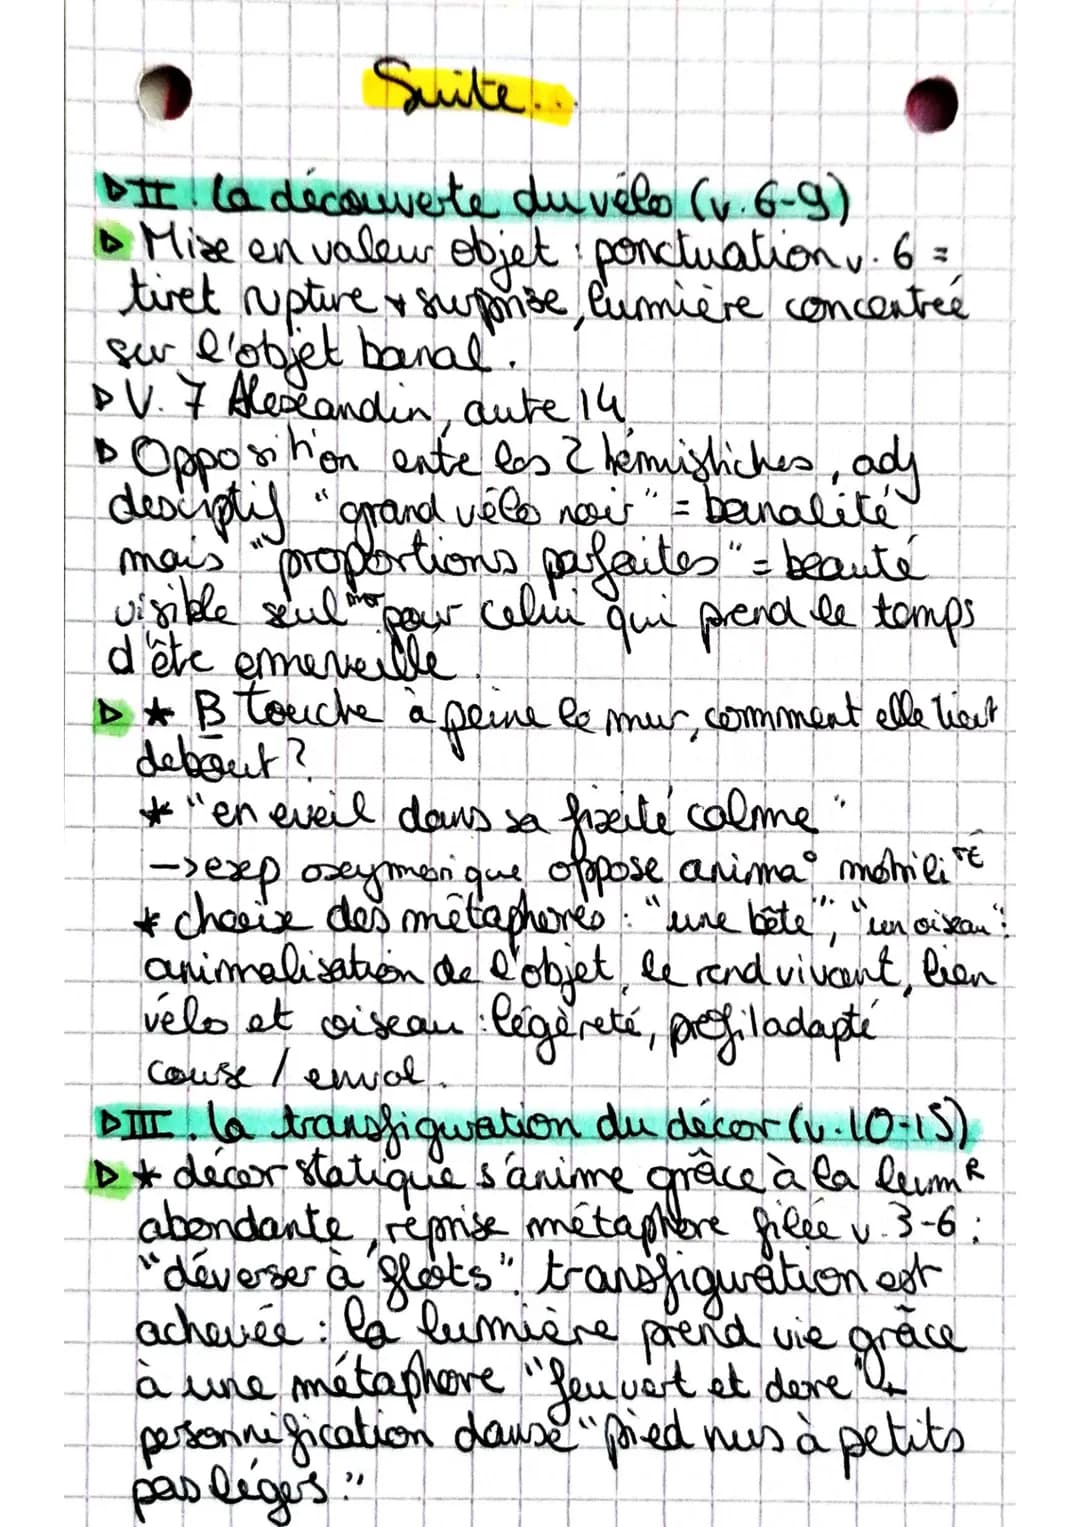 Suite...
▷II. La découverte du vélo (v.6-9)
▷ Mise en valeur objet : ponctuation v. 6 =
tiret rupture + surprise, lumière concentreé
sur l'objet banal.
▷ V. 7 Alexandin, autre 14
▷ Opposition ente les 2 hémistiches, adj
desciptif "grand vélo noir" = banalité
mais "proportions parfaites" = beauté
visible seul pour celui qui prend le temps
d'êtc emerveille.
▷ * B touche à peine le mur, comment elle tient
debout ?
* "en eveil dans sa fixité calme"
-> exp oxeymorique oppose anima° mobilité
* choix des métaphores : "une bête", "un oiseau" :
animalisation de l'objet, le rend vivant, lien
vélo et oiseau : légèreté, profil adapté
couse / envol.
▷III. La transfiguration du décor (v.10-15)
▷ * décor statique s'anime grâce à la lumR
abondante, reprise métaphore filée v. 3-6 :
"déverser à flots". transfiguration est
achevée : la lumière prend vie grâce
à une métaphore "feu vert et dore" +
personnification danse "pied nus à petits
pas légers."